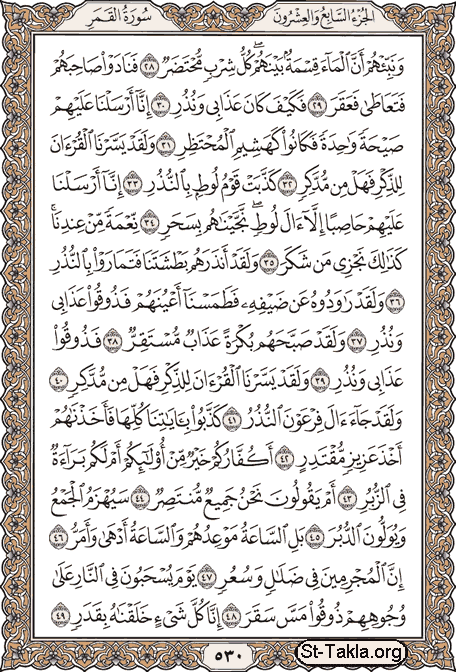 الجزء السابع والعشرون
سورة القمر
وَنَبِّئْهُمْ أَنَّ ٱلْمَآءَ قِسْمَةٌۢ بَيْنَهُمْ ۖ كُلُّ شِرْبٍ مُّحْتَضَرٌ ٢٨ فَنَادَوْا۟ صَاحِبَهُمْ
فَتَعَاطَىٰ فَعَقَرَ ٢٩ فَكَيْفَ كَانَ عَذَابِى وَنُذُرِ ٣٠ إِنَّآ أَرْسَلْنَا عَلَيْهِمْ
صَيْحَةً وَٰحِدَةً فَكَانُوا۟ كَهَشِيمِ ٱلْمُحْتَظِرِ ٣١ وَلَقَدْ يَسَّرْنَا ٱلْقُرْءَانَ
لِلذِّكْرِ فَهَلْ مِن مُّدَّكِرٍ ٣٢ كَذَّبَتْ قَوْمُ لُوطٍۭ بِٱلنُّذُرِ ٣٣ إِنَّآ أَرْسَلْنَا
عَلَيْهِمْ حَاصِبًا إِلَّآ ءَالَ لُوطٍ ۖ نَّجَّيْنَٰهُم بِسَحَرٍ ٣٤ نِّعْمَةً مِّنْ عِندِنَا ۚ
كَذَٰلِكَ نَجْزِى مَن شَكَرَ ٣٥ وَلَقَدْ أَنذَرَهُم بَطْشَتَنَا فَتَمَارَوْا۟ بِٱلنُّذُرِ
٣٦ وَلَقَدْ رَٰوَدُوهُ عَن ضَيْفِهِۦ فَطَمَسْنَآ أَعْيُنَهُمْ فَذُوقُوا۟ عَذَابِى
وَنُذُرِ ٣٧ وَلَقَدْ صَبَّحَهُم بُكْرَةً عَذَابٌ مُّسْتَقِرٌّ ٣٨ فَذُوقُوا۟
عَذَابِى وَنُذُرِ ٣٩ وَلَقَدْ يَسَّرْنَا ٱلْقُرْءَانَ لِلذِّكْرِ فَهَلْ مِن مُّدَّكِرٍ ٤٠
وَلَقَدْ جَآءَ ءَالَ فِرْعَوْنَ ٱلنُّذُرُ ٤١ كَذَّبُوا۟ بِـَٔايَٰتِنَا كُلِّهَا فَأَخَذْنَٰهُمْ
أَخْذَ عَزِيزٍ مُّقْتَدِرٍ ٤٢ أَكُفَّارُكُمْ خَيْرٌ مِّنْ أُو۟لَٰٓئِكُمْ أَمْ لَكُم بَرَآءَةٌ
فِى ٱلزُّبُرِ ٤٣ أَمْ يَقُولُونَ نَحْنُ جَمِيعٌ مُّنتَصِرٌ ٤٤ سَيُهْزَمُ ٱلْجَمْعُ
وَيُوَلُّونَ ٱلدُّبُرَ ٤٥ بَلِ ٱلسَّاعَةُ مَوْعِدُهُمْ وَٱلسَّاعَةُ أَدْهَىٰ وَأَمَرُّ ٤٦
إِنَّ ٱلْمُجْرِمِينَ فِى ضَلَٰلٍ وَسُعُرٍ ٤٧ يَوْمَ يُسْحَبُونَ فِى ٱلنَّارِ عَلَىٰ
وُجُوهِهِمْ ذُوقُوا۟ مَسَّ سَقَرَ ٤٨ إِنَّا كُلَّ شَىْءٍ خَلَقْنَٰهُ بِقَدَرٍ ٤٩
٥٣٠
St-Takla.org